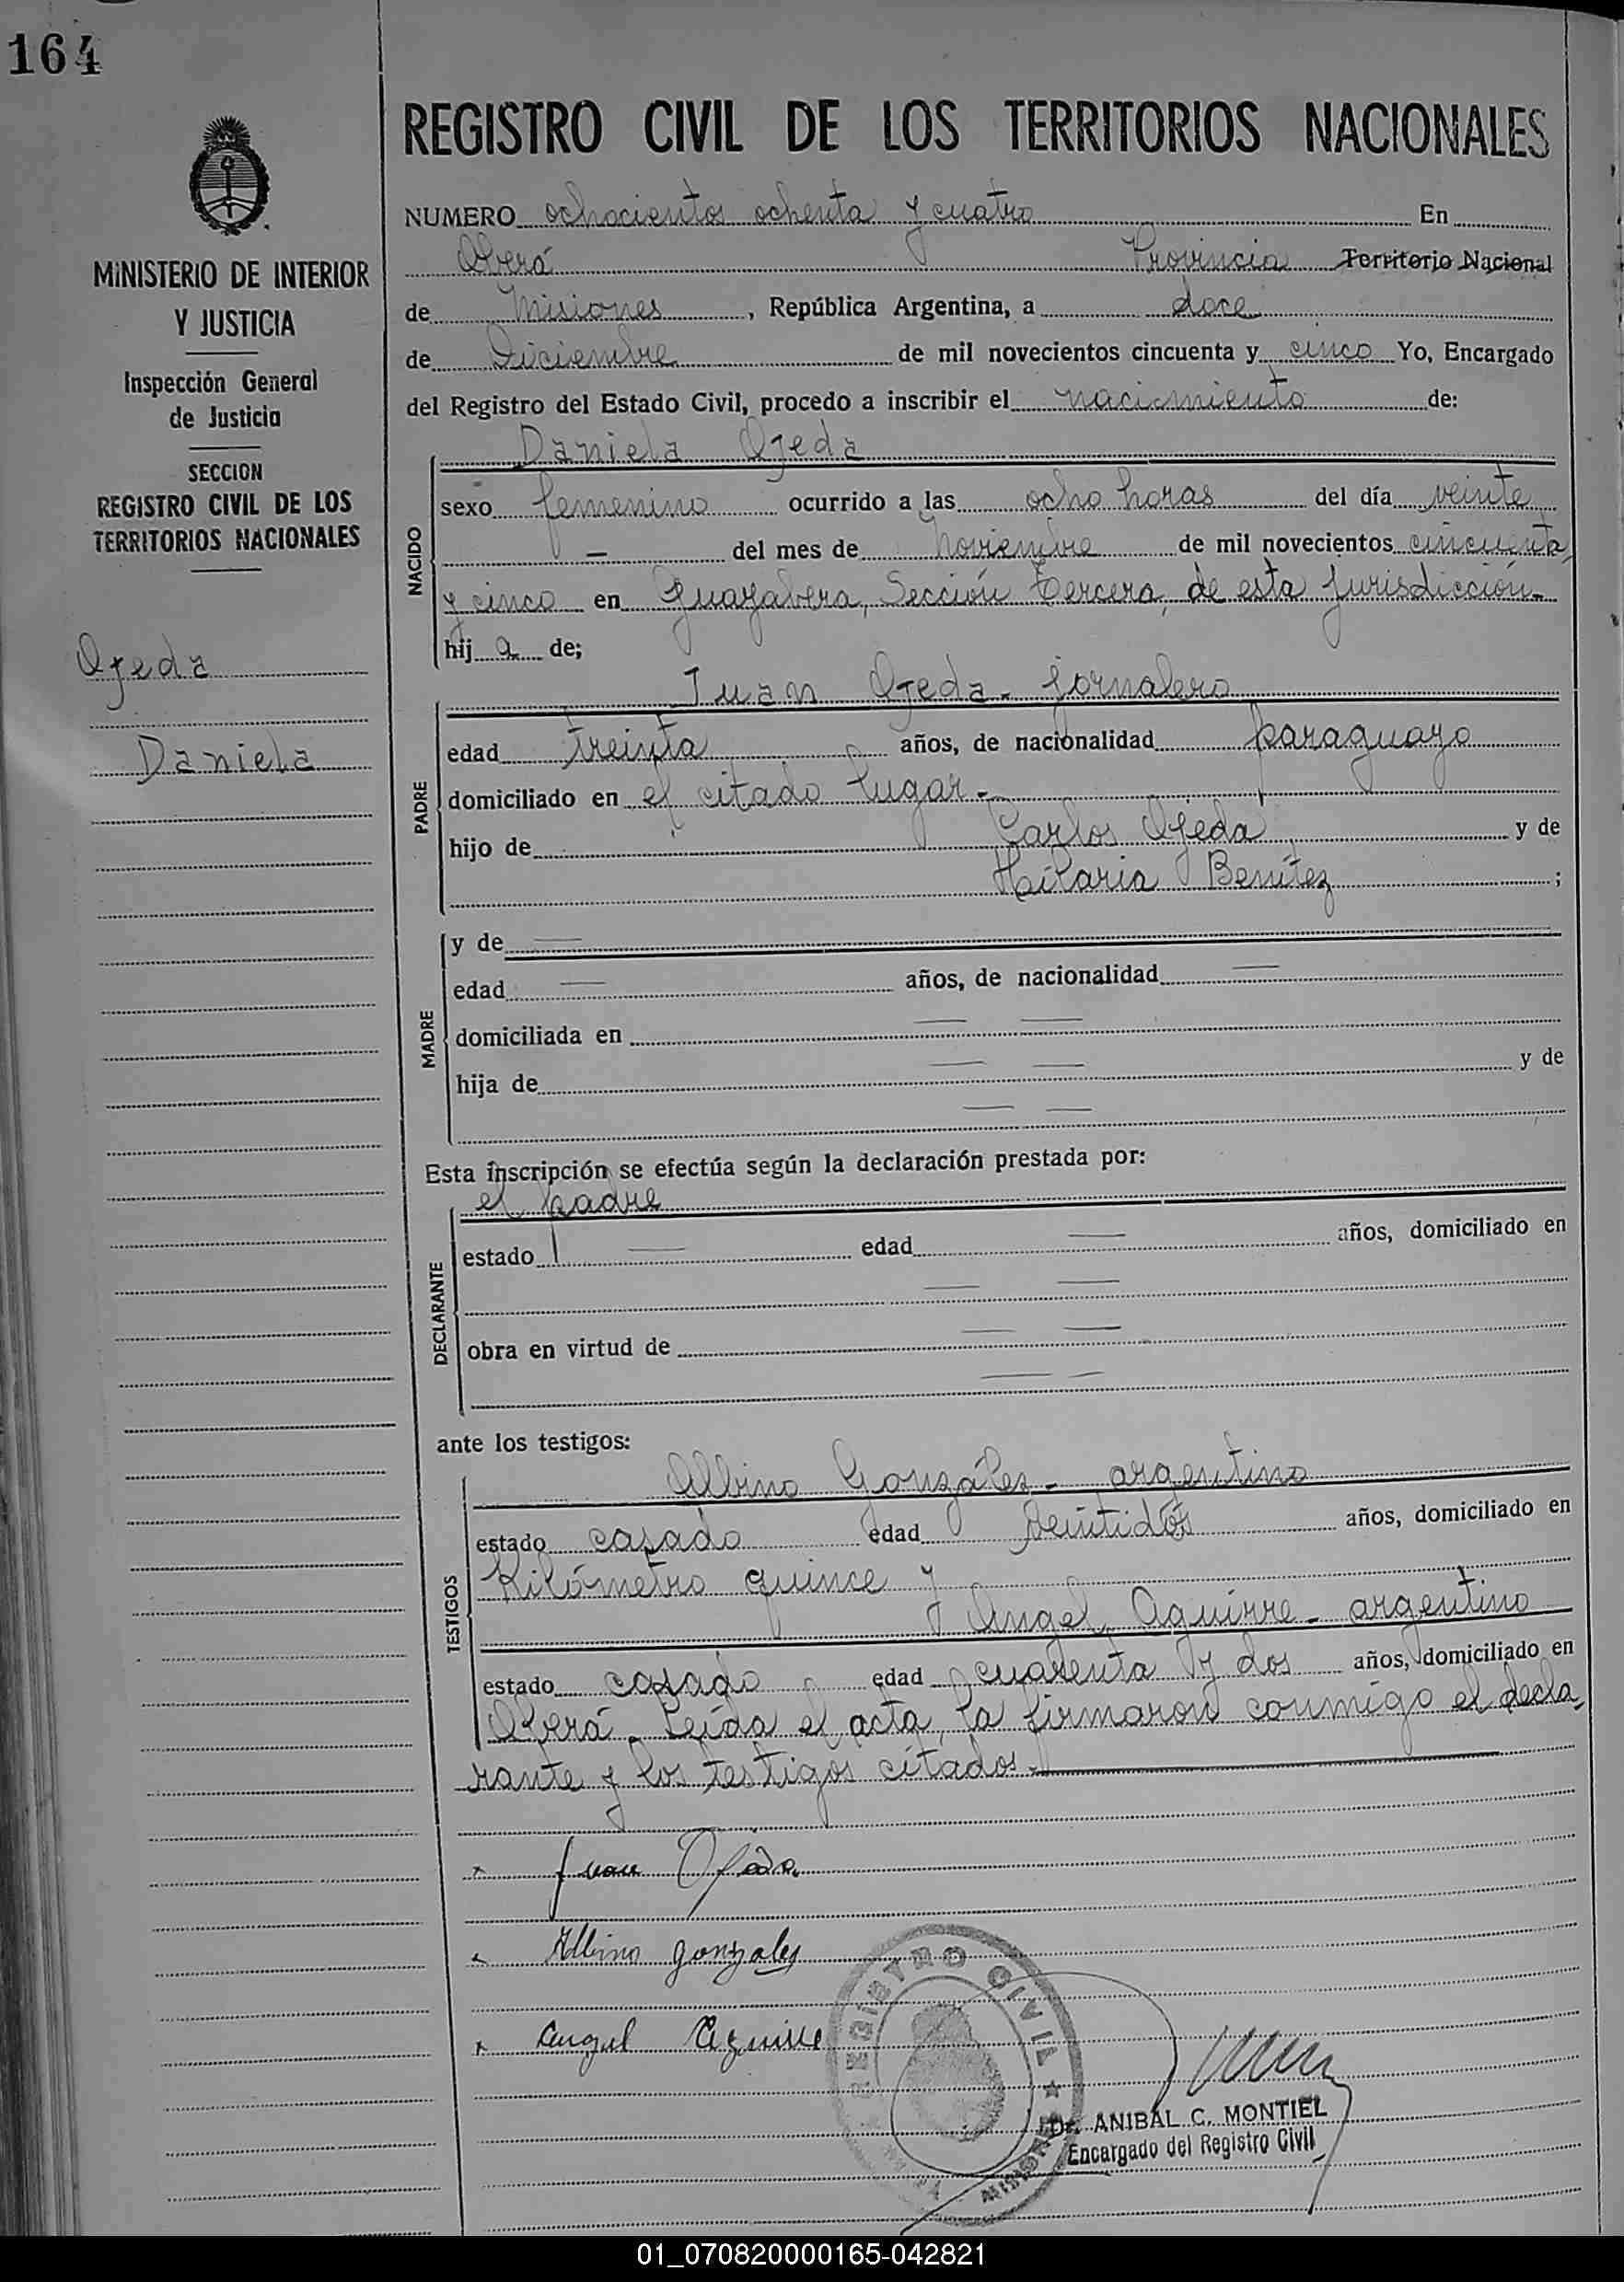 164
MINISTERIO DE INTERIOR
Y JUSTICIA
Inspección General
de Justicia
SECCION
REGISTRO CIVIL DE LOS
TERRITORIOS NACIONALES
Ojeda
Daniela
REGISTRO CIVIL DE LOS TERRITORIOS NACIONALES
NUMERO ochocientos ochenta y cuatro En
Oberá Provincia Territorio Nacional
de Misiones, República Argentina, a doce
de Diciembre de mil novecientos cincuenta y cinco Yo, Encargado
del Registro del Estado Civil, procedo a inscribir el nacimiento de:
Daniela Ojeda
NACIDO
sexo femenino ocurrido a las ocho horas del día veinte
— del mes de Noviembre de mil novecientos cincuenta
y cinco en Guayabera, Sección tercera, de esta jurisdicción.-
hij a de;
Juan Ojeda - jornalero
PADRE
edad treinta años, de nacionalidad paraguayo
domiciliado en el citado lugar.-
hijo de Carlos Ojeda y de
Hilaria Benítez ;
MADRE
y de —
edad — años, de nacionalidad —
domiciliada en — —
hija de — — y de
— —
Esta inscripción se efectúa según la declaración prestada por:
el padre
DECLARANTE
estado — edad — años, domiciliado en
— —
obra en virtud de — —
— —
ante los testigos:
Albino Gonzáles - argentino
TESTIGOS
estado casado edad veintidós años, domiciliado en
Kilómetro quince y
Angel Aguirre - argentino
estado casado edad cuarenta y dos años, domiciliado en
Oberá. Leída el acta, la firmaron conmigo el decla-
rante y los testigos citados.-
Juan Ojeda
Albino gonzales
Angel Aguirre
REGISTRO CIVIL ★
MISIONES
Dr. ANIBAL C. MONTIEL
Encargado del Registro Civil
01_070820000165-042821